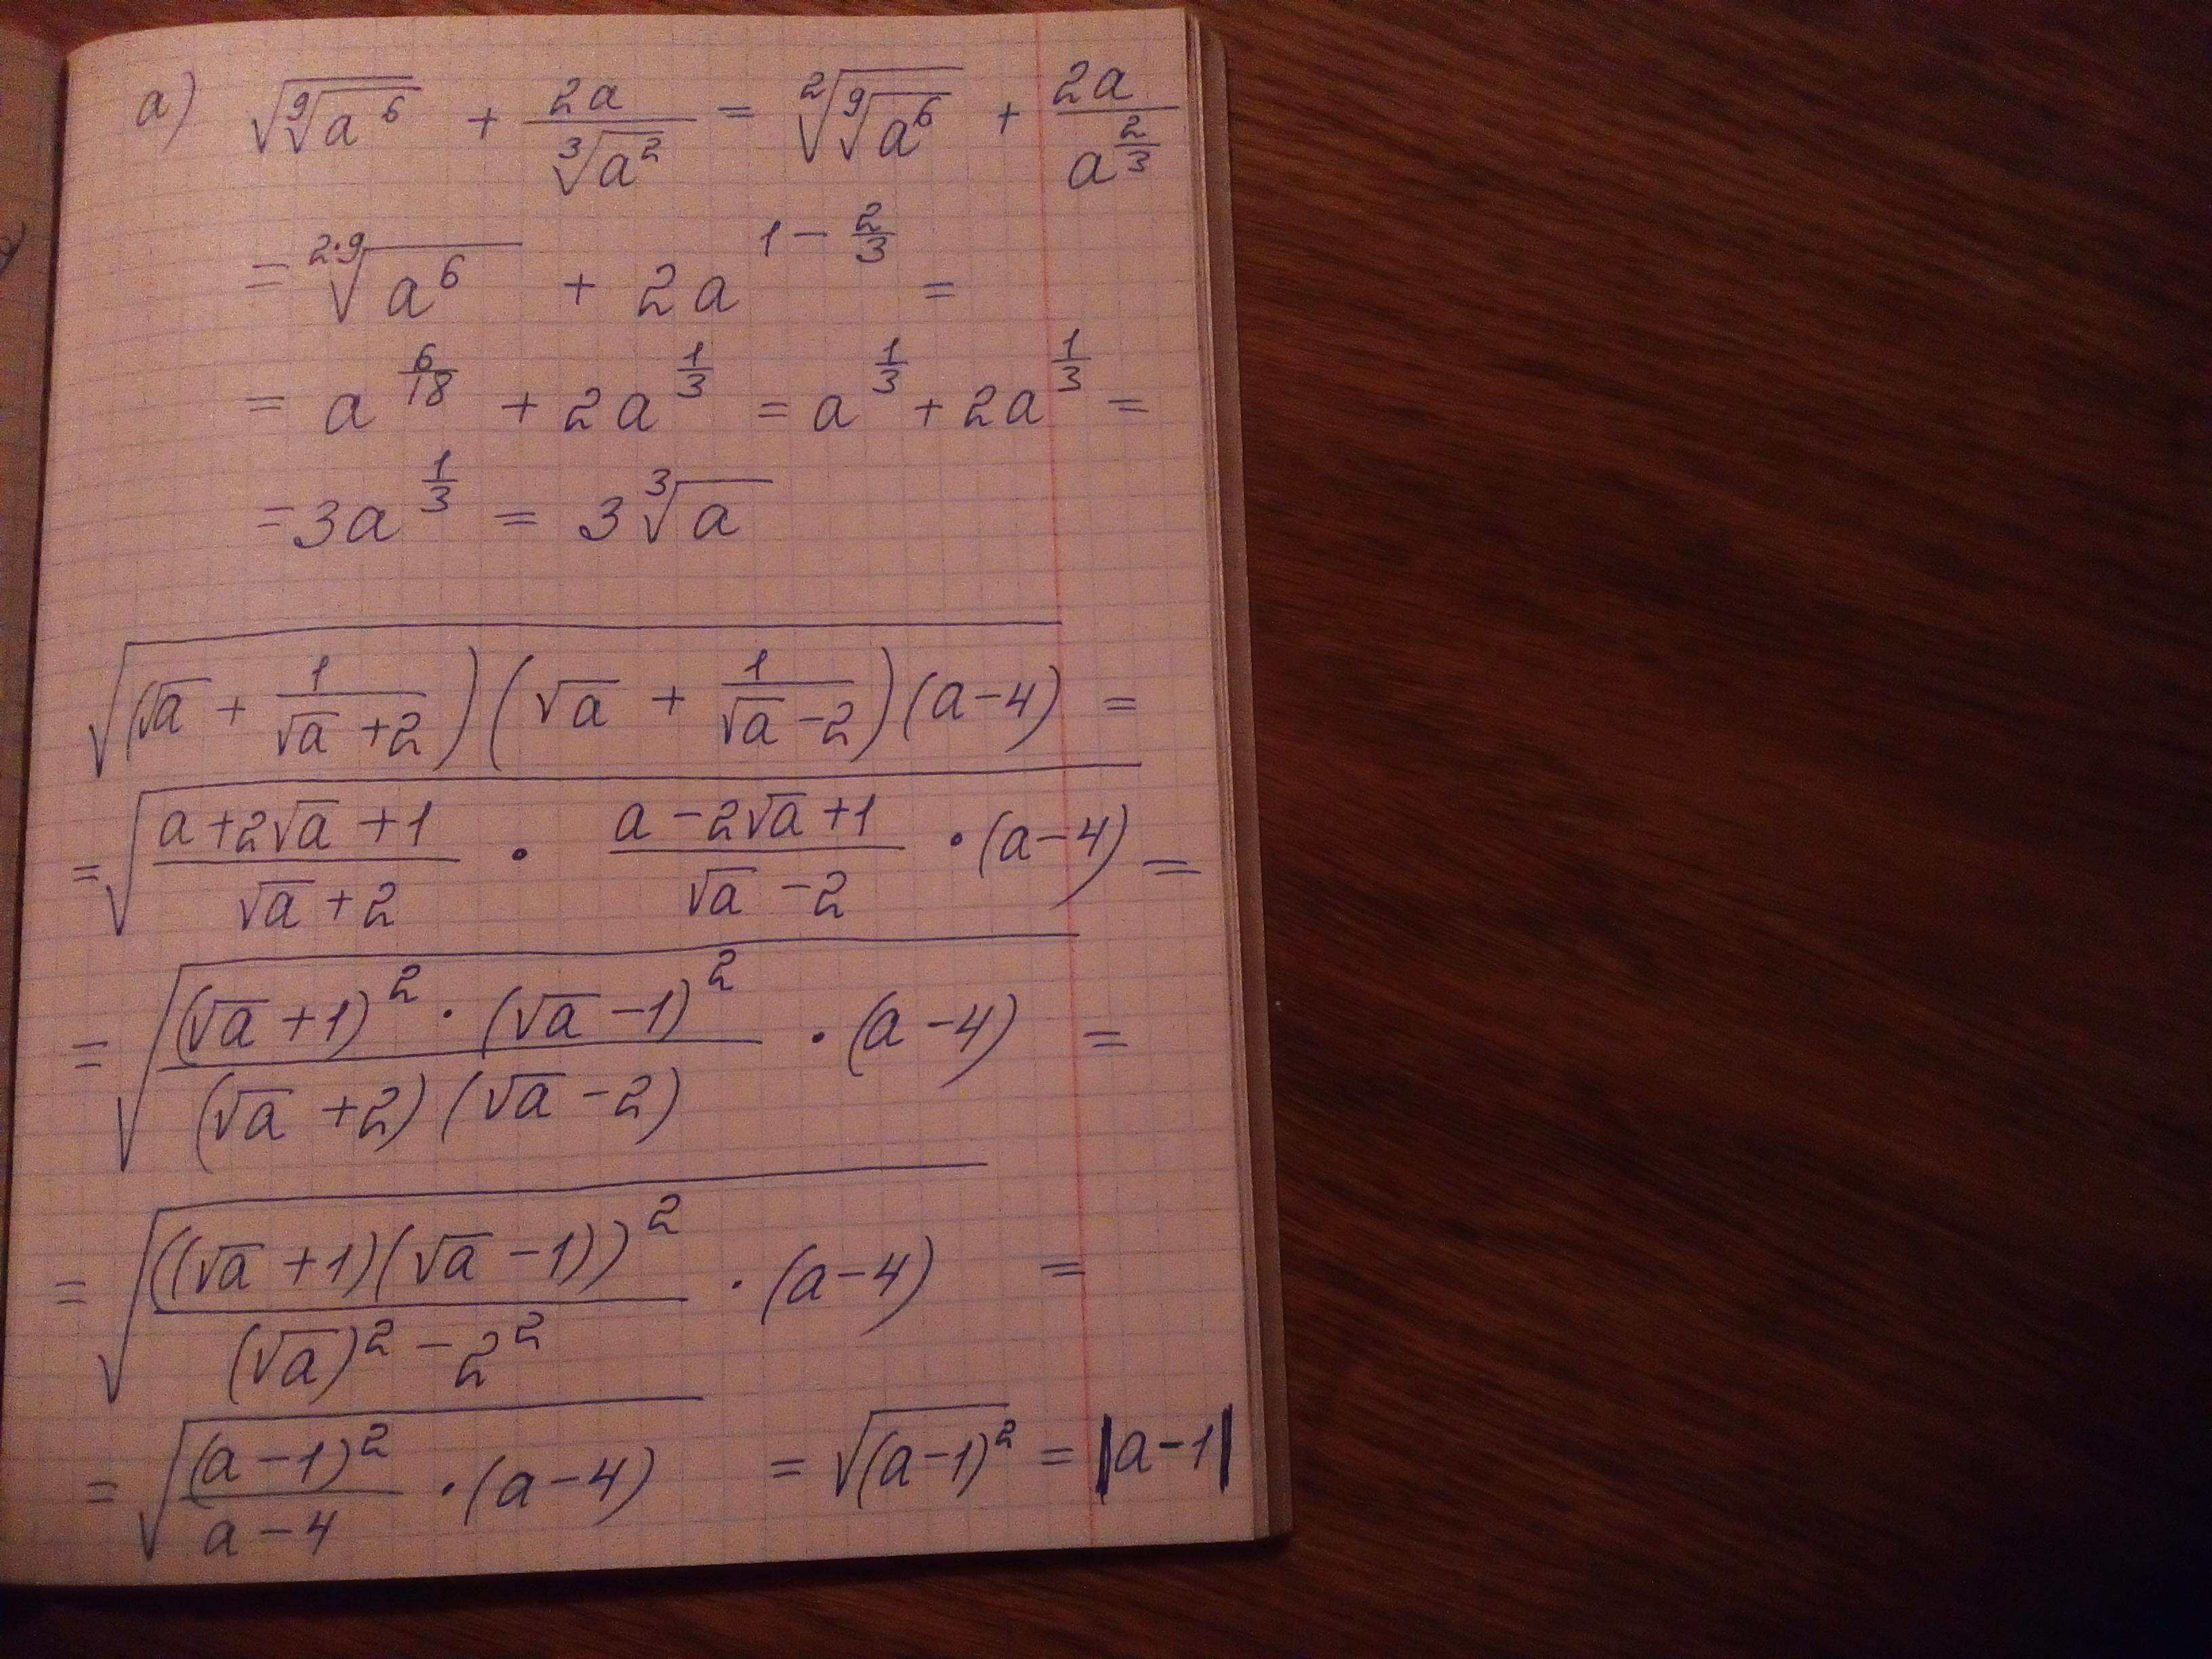 а) √(⁹√(a⁶)) + 2a/∛(a²) = ²√(⁹√(a⁶)) + 2a/a^(2/3)
= ^(2·9)√(a⁶) + 2a^(1 - 2/3) =
= a^(6/18) + 2a^(1/3) = a^(1/3) + 2a^(1/3) =
= 3a^(1/3) = 3∛a
√((√a + 1/(√a + 2))(√a + 1/(√a - 2))(a - 4)) =
= √((a + 2√a + 1)/(√a + 2) · (a - 2√a + 1)/(√a - 2) · (a - 4)) =
= √((√a + 1)² · (√a - 1)²/((√a + 2)(√a - 2)) · (a - 4)) =
= √(((√a + 1)(√a - 1))²/((√a)² - 2²) · (a - 4)) =
= √((a - 1)²/(a - 4) · (a - 4)) = √((a - 1)²) = |a - 1|